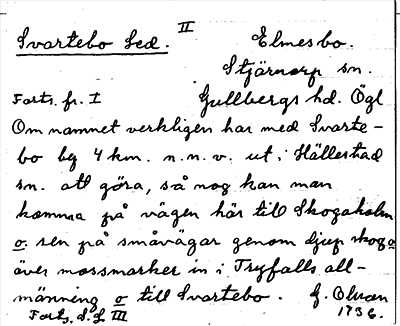 Svartebo Led. II Elmesbo.
Stjärnorp sn.
Forts. fr. I Gullbergs hd. Ögl
Om namnet verkligen har med Svarte-
bo bg 4 km. n.n.v. ut i Hällestad
sn. att göra, så nog kan man
komma på vägen här till Skogaholm
o. sen på småvägar genom djup skog o
över mossmarker in i Tryfalls all-
männing o till Svartebo. G. Olson
Forts. S. L. III 1936.